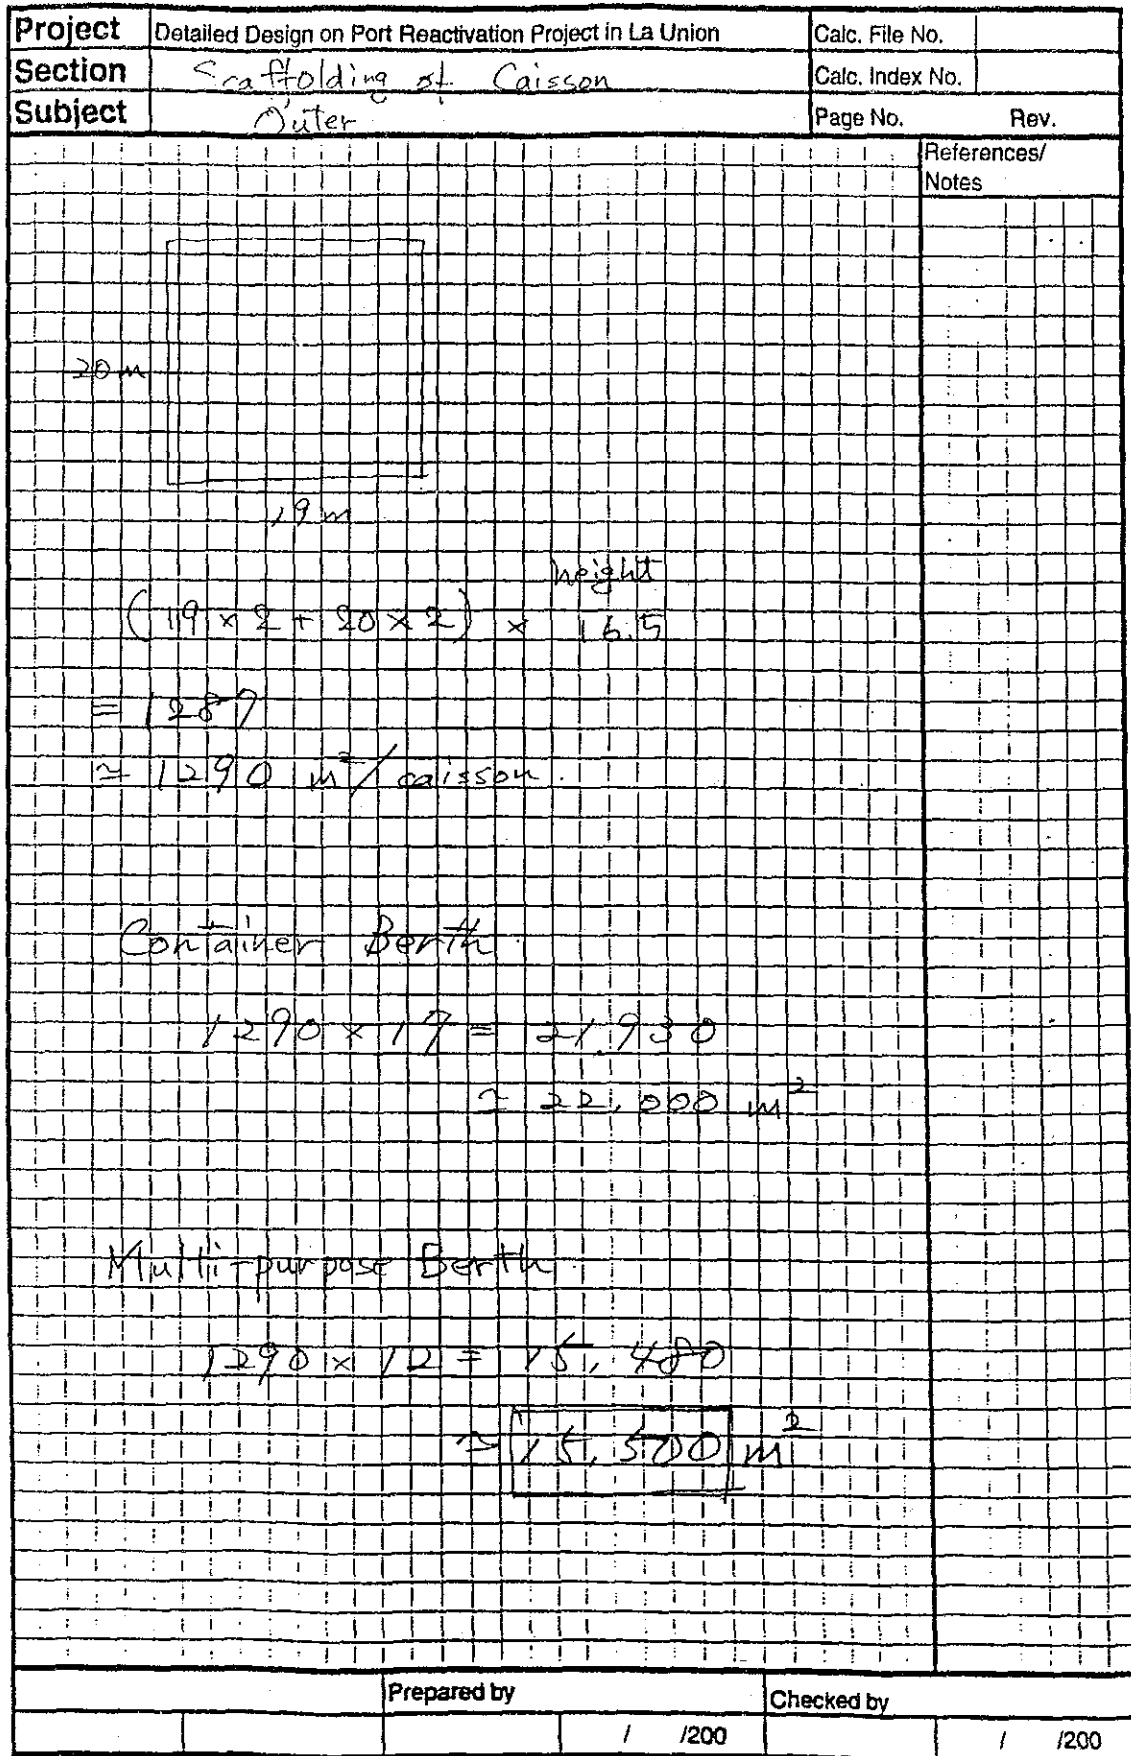 Project Detailed Design on Port Reactivation Project in La Union Calc. File No.
Section Scaffolding of Caisson Calc. Index No.
Subject Outer Page No. Rev.
References/
Notes
20 m
19 m
height
(19 × 2 + 20 × 2) × 16.5
= 1287
≃ 1290 m²/caisson.
Container Berth
1290 × 17 = 21,930
≃ 22,000 m²
Multi-purpose Berth
1290 × 12 = 15,480
≃ 15,500 m²
Prepared by Checked by
/ /200 / /200